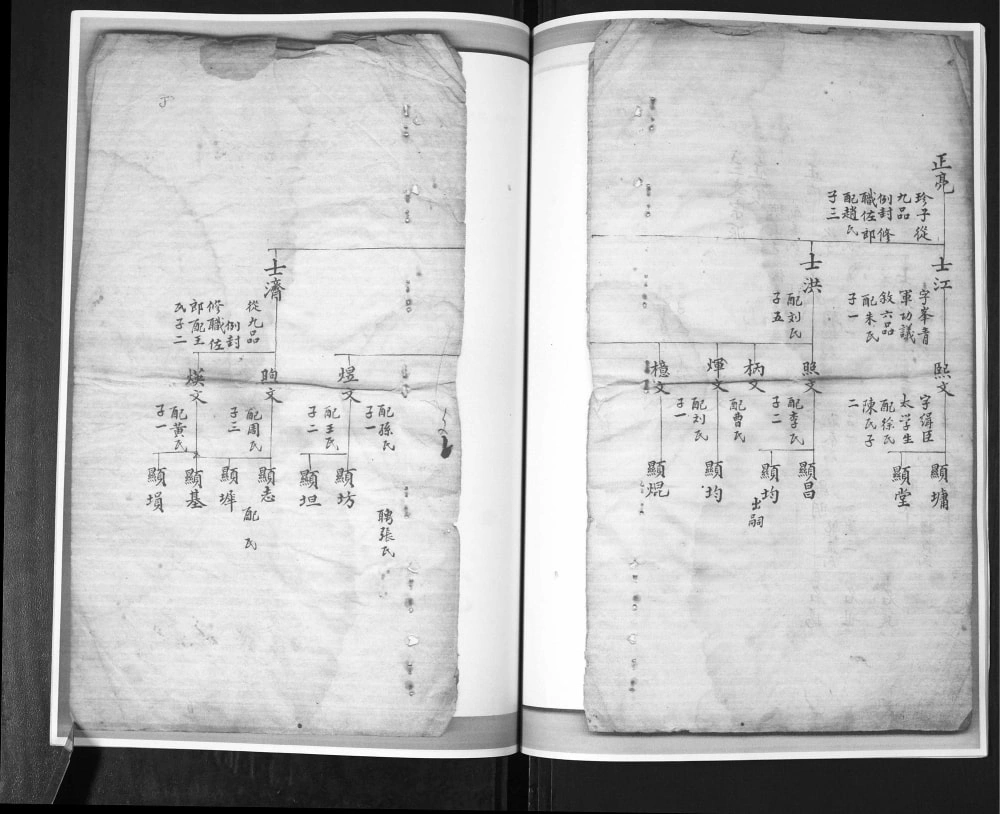 正亮
珍子從
九品
例封修
職佐郎
配趙氏
子三
士江
字峯青
軍功議
敘六品
配朱氏
子一
熙文
字緝臣
太學生
配徐氏
陳氏子
二
顯墉
顯堂
士洪
配刘氏
子五
照文
配李氏
子二
顯昌
顯均
出嗣
柄文
配曹氏
煇文
配刘氏
子一
顯均
檍文
顯焜
煜文
配孫氏
子一
顯坊
聘張氏
配王氏
子二
顯坦
士濟
從九品
例封
修職佐
郎配王
氏子二
煦文
配周氏
子三
顯志
配 氏
顯墀
煐文
配黃氏
子一
顯基
顯塤